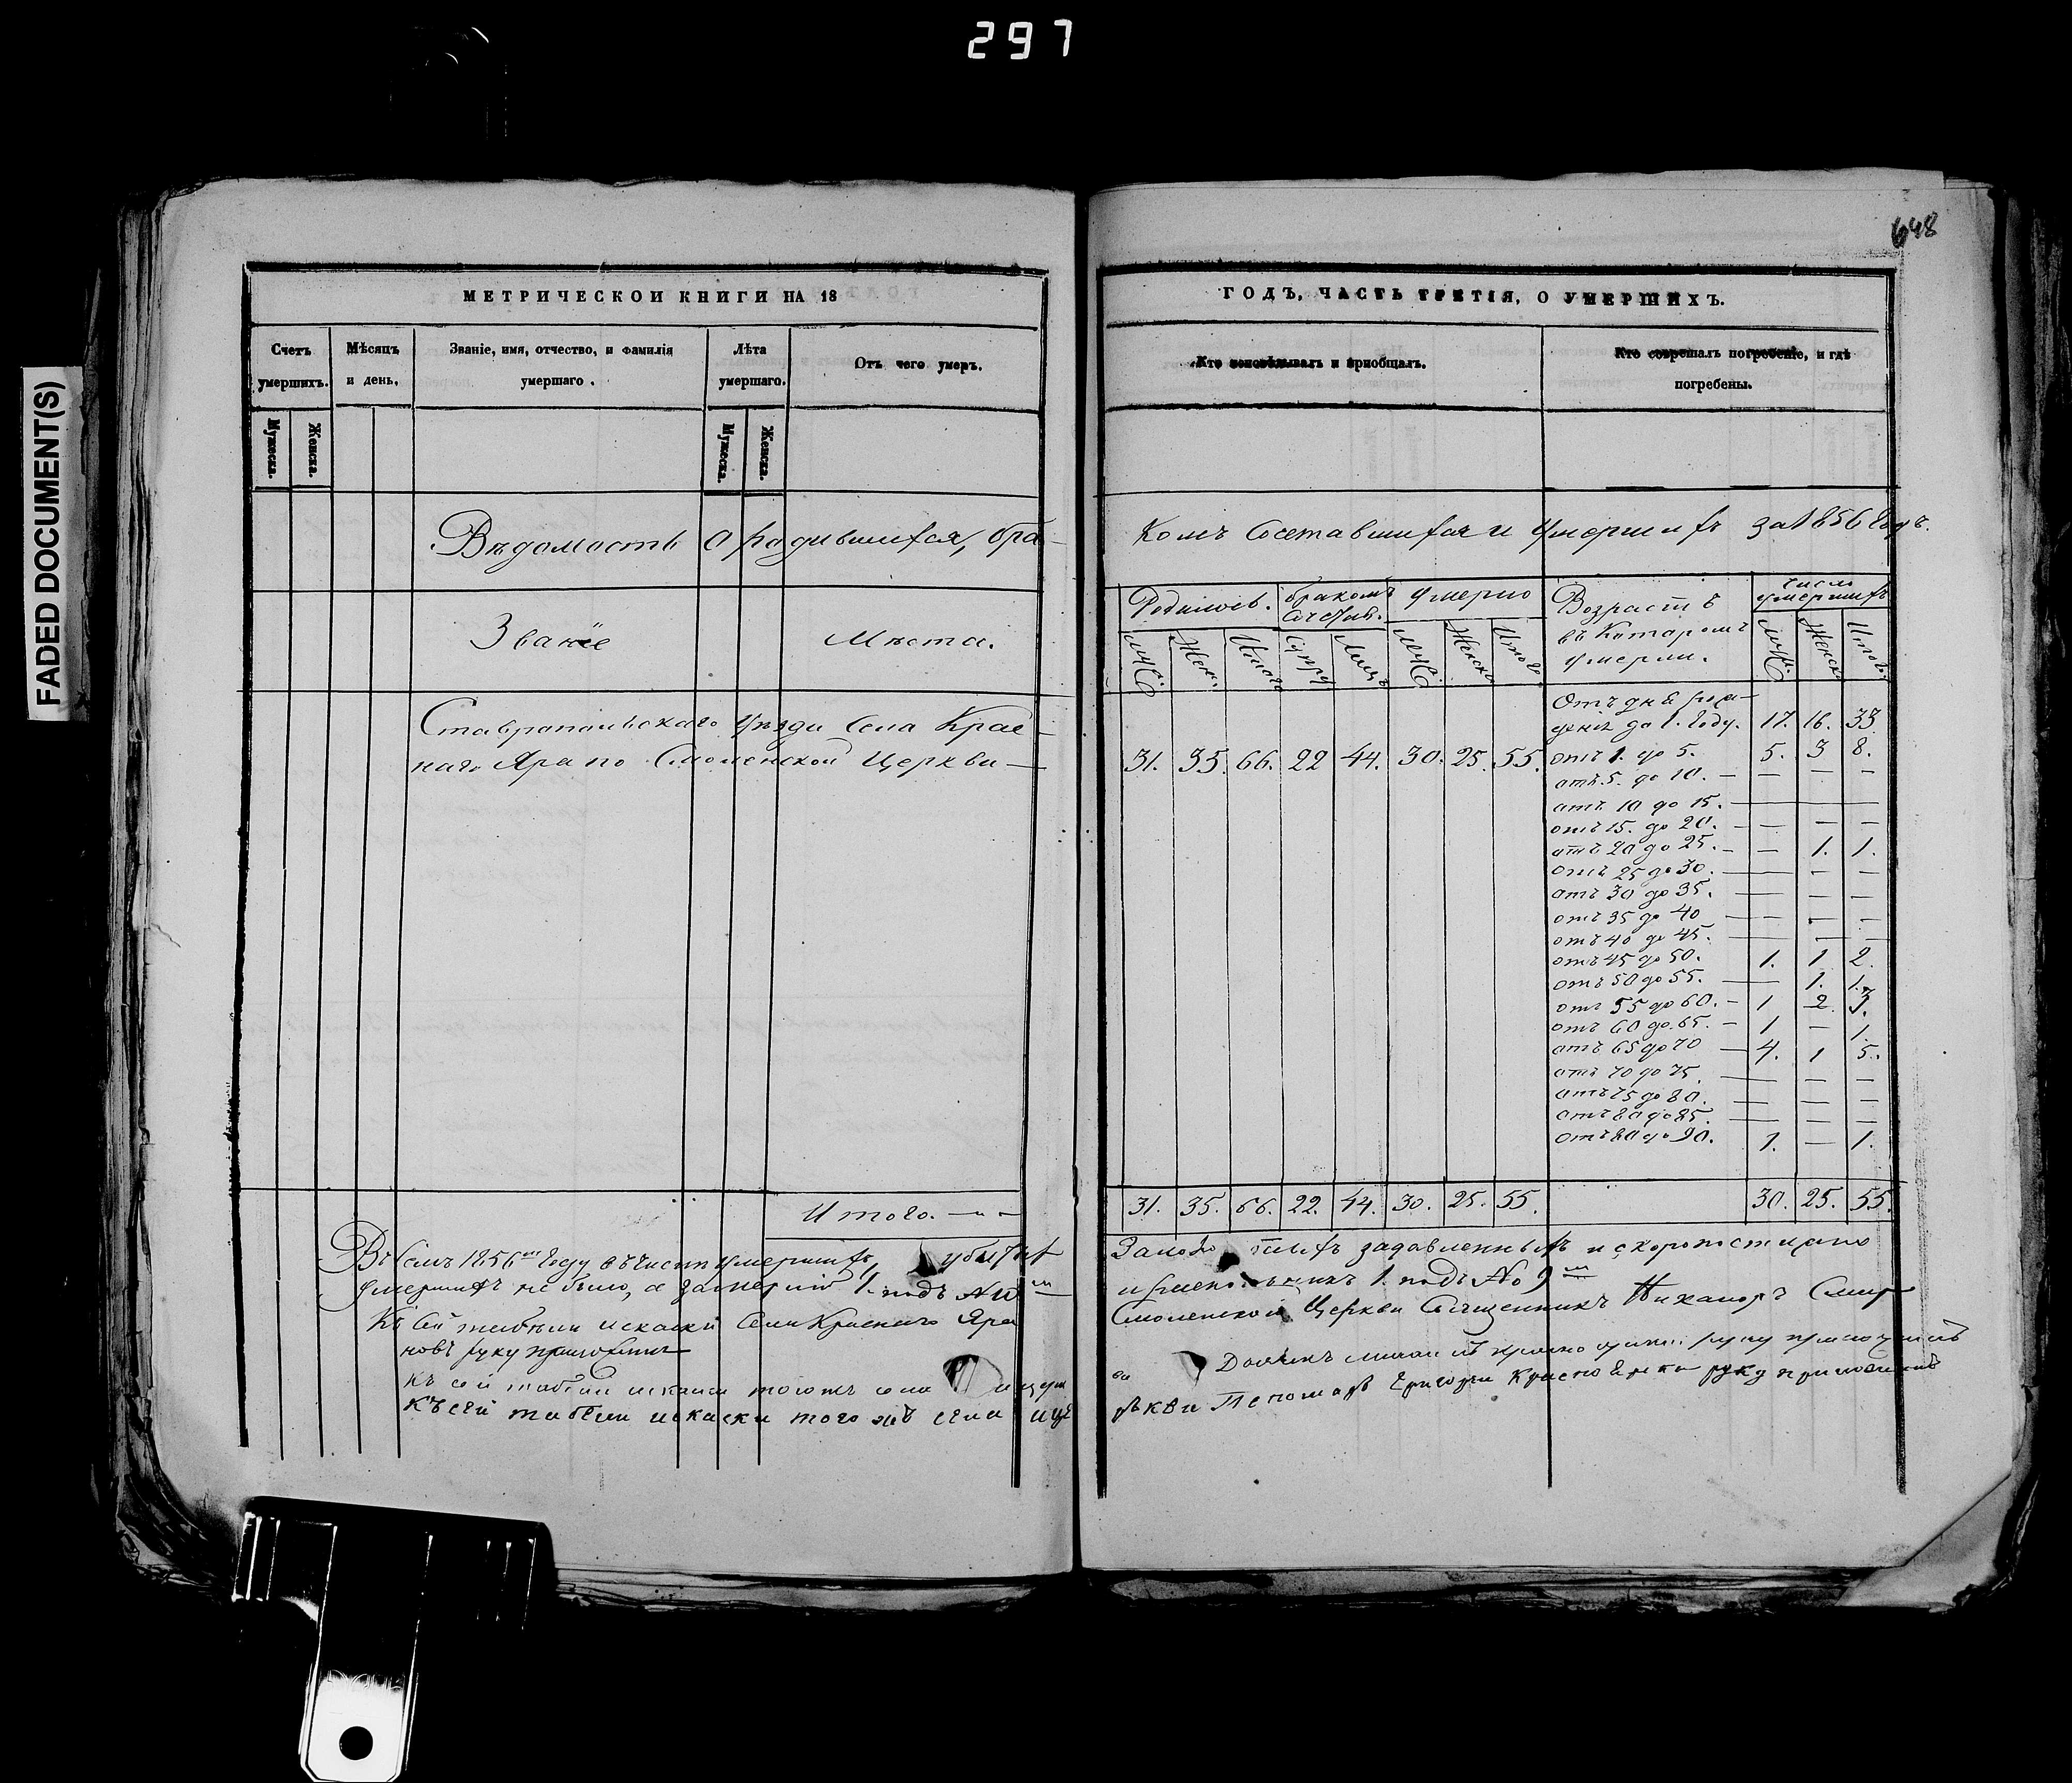 297
FADED DOCUMENT(S)
648
МЕТРИЧЕСКОИ КНИГИ НА 18
Счетъ умершихъ.
Мужеска.
Женска.
Мѣсяцъ и день.
Званіе, имя, отчество, и фамилія умершаго.
Лѣта умершаго.
Мужеска.
Женска.
Отъ чего умеръ.
ГОДЪ, ЧАСТЬ ТРЕТІЯ, О УМЕРШИХЪ.
Кто исповѣдывалъ и пріобщалъ.
Кто совершалъ погребеніе, и гдѣ погребены.
Вѣдомость о родившихся, бра-
комъ Сочетавшихся и Умершихъ за 1856 Годъ.
Званіе
Мѣста.
Родилось.
бракомъ
Умерло
Возрастъ
въ Которомъ
умерли.
число
умершихъ
Ставропольскаго Уѣзда Села Крас-
наго Яра по Смоленской Церкви —
31. 35. 66. 22 44. 30. 25. 55.
Отъ дня рож-
денія до 1. Году. 17. 16. 33.
отъ 1. до 5. 5. 3 8.
отъ 5. до 10. — — — —
отъ 10 до 15. —
отъ 15. до 20. — — — —
отъ 20 до 25. — — 1. 1.
отъ 25 до 30. — — —
отъ 30 до 35. — — —
отъ 35 до 40 — — — —
отъ 40 до 45. — — —
отъ 45 до 50. 1. 1 2.
отъ 50 до 55. — 1. 1.
отъ 55 до 60. — 1 2. 3.
отъ 60 до 65. — 1 — 1.
отъ 65 до 70 — 4. 1 5.
отъ 70 до 75. — — —
отъ 75 до 80. — — —
отъ 80 до 85. — — —
отъ 80 до 90. 1. — 1.
Итого. — —
31. 35. 66. 22. 44. 30. 25. 55.
30. 25. 55.
Въ семъ 1856 Году въ числѣ Умершихъ, убитыхъ
задавленныхъ и скоропостижно
Умершихъ не было, а 1. подъ №
1. подъ № 9
Къ сей Села Краснаго Яра
Смоленской Церкви Священникъ Никаноръ Смир
новъ руку приложилъ
Къ сей того жъ села
руку приложилъ
Къ сей того жъ села
ркви Пономарь Григорій руку приложилъ